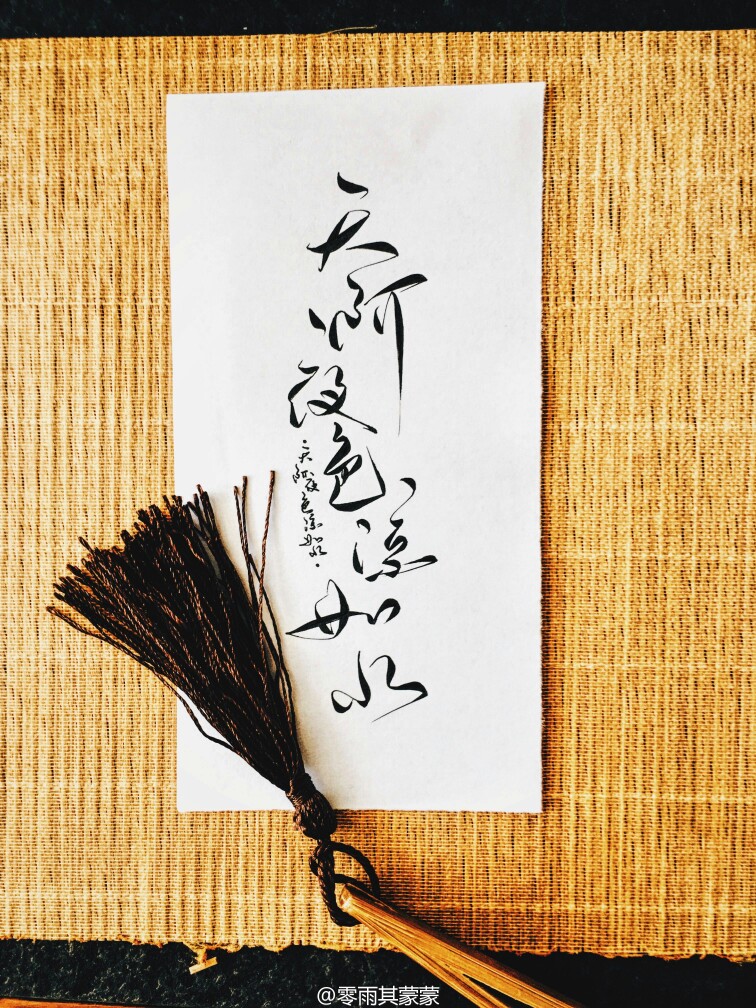 天阶夜色凉如水
天阶夜色凉如水
@零雨其蒙蒙